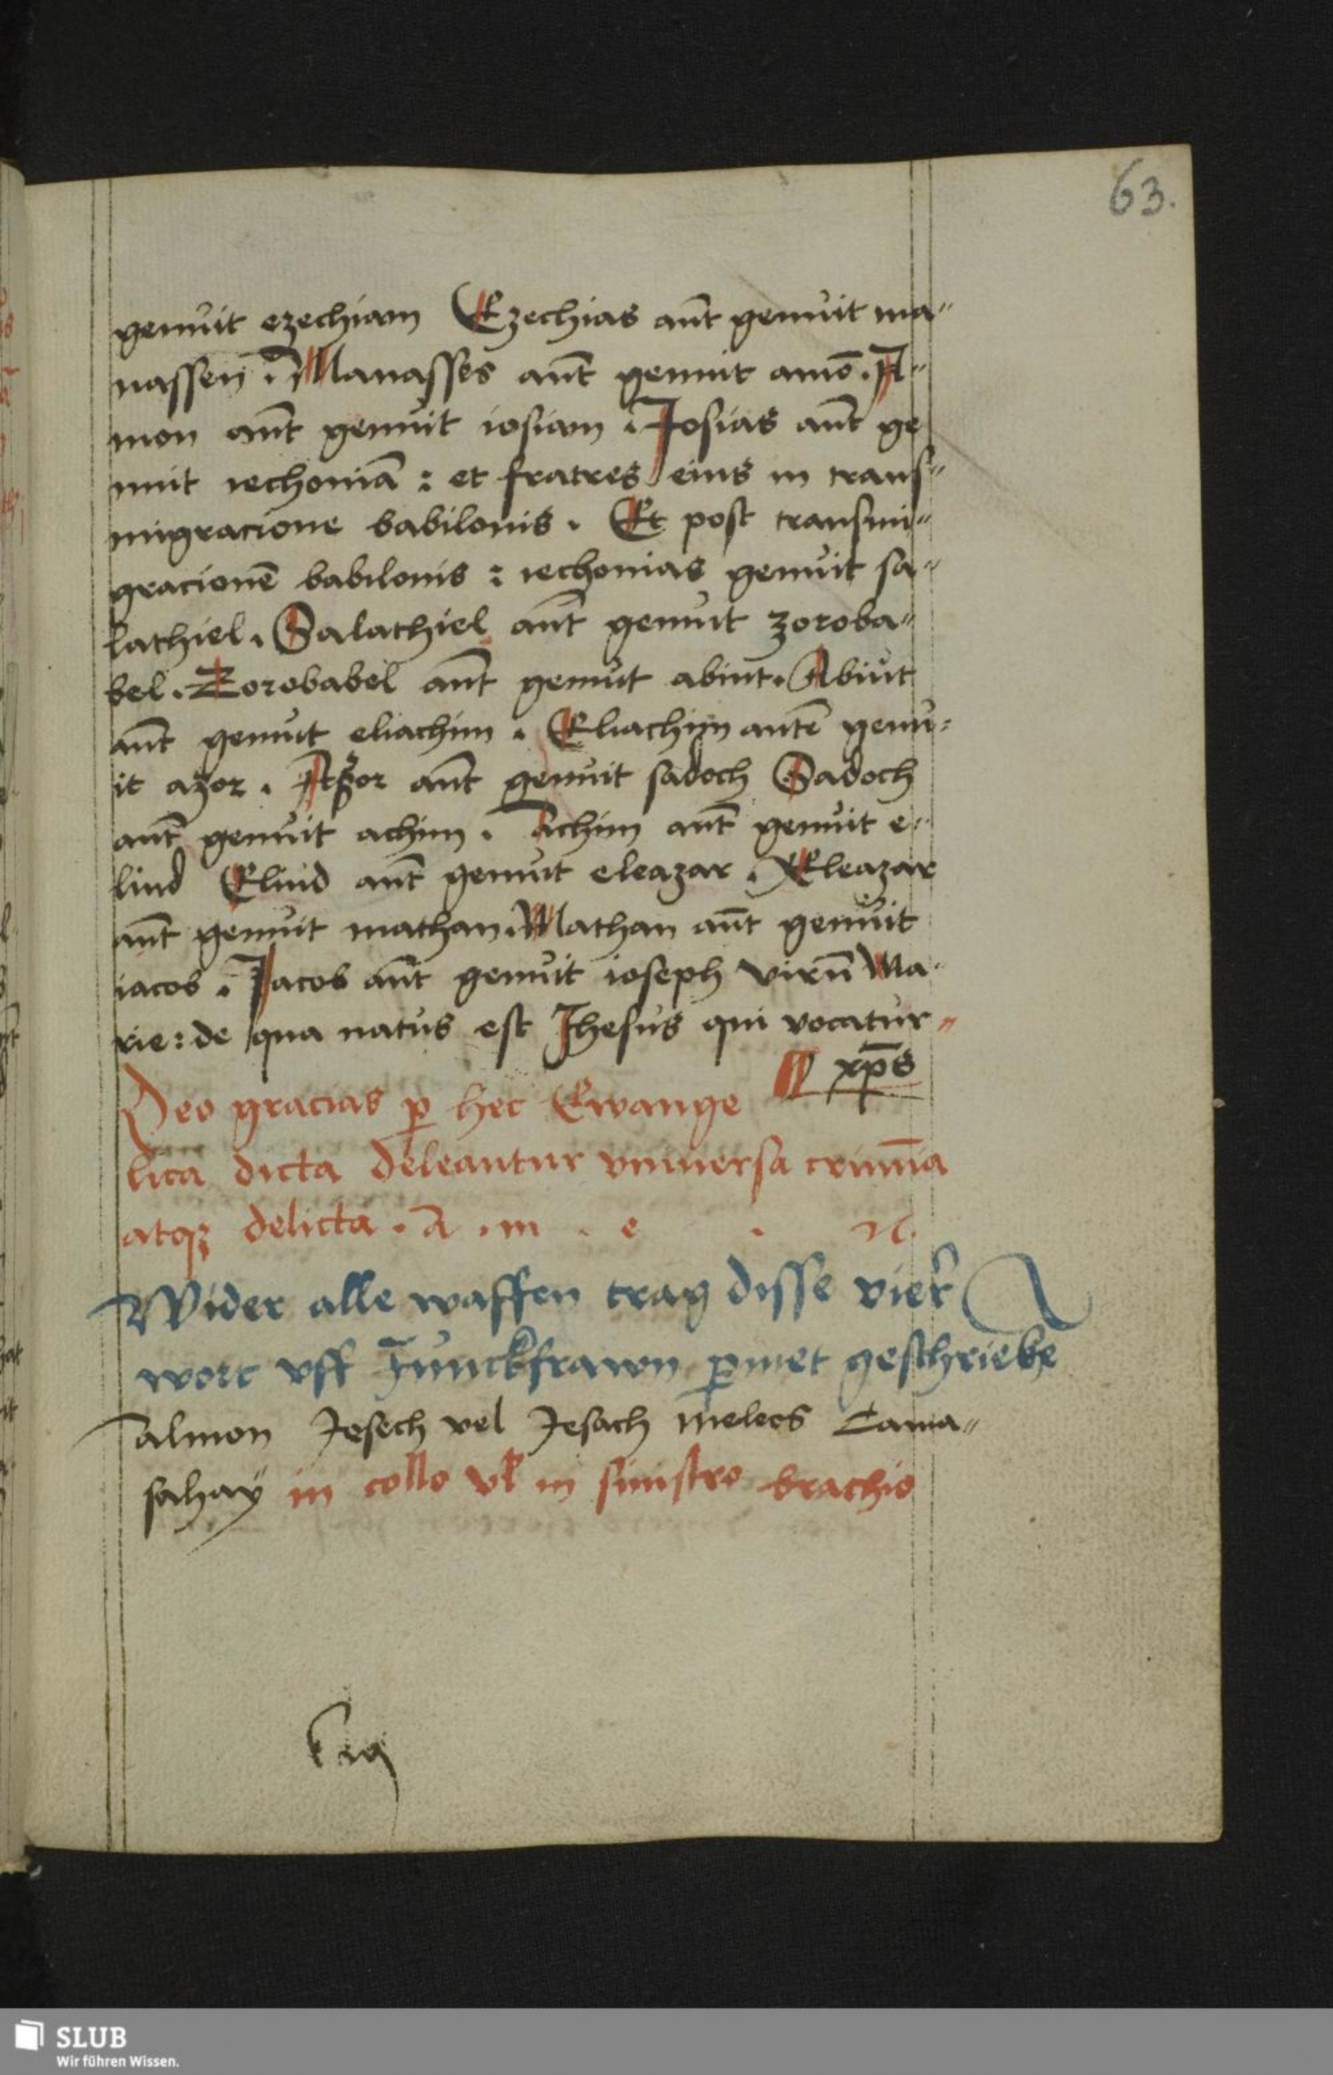 63.
genuit ezechiam Ezechias aūt genuit ma"
nassen . Manasses aūt genuit amō . A"
mon aūt genuit iosiam . Josias aūt ge
nuit iechoniā : et fratres eius in trans"
migracione babilonis . Et post transmi"
gracionē babilonis : iechonias genuit sa"
lathiel . Salathiel aūt genuit zoroba"
bel . Zorobabel aūt genuit abiut . Abiut
aūt genuit eliachim . Eliachim autē genu"
it azor . Aszor aūt genuit sadoch Sadoch
aūt genuit achim . Achim aūt genuit e"
liud Eliud aūt genuit eleazar . Eleazar
aūt genuit mathan . Mathan aūt genuit
iacob . Jacob aūt genuit ioseph virū Ma"
rie : de qua natus est Jhesus qui vocatur"
xp̄s
Deo gracias ꝑ hec Ewange
lica dicta deleantur vniuersa crimīa
atqꝫ delicta . A . m . e . n.
Wider alle waffen trag disse vier
wort vff Junckfrawn ꝑmet geschriebē
Talmon Jesech vel Jesach meleos Cama"
sahaÿ in collo vl̄ in sinistro brachio
SLUB
Wir führen Wissen.